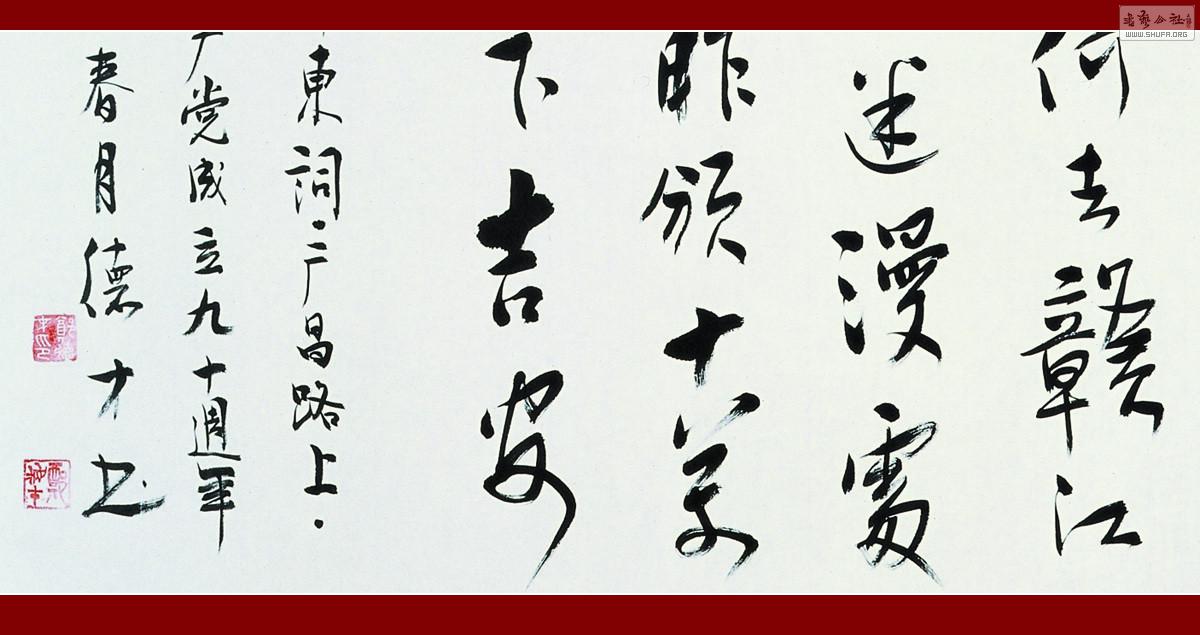 何去贛江
迷漫處
昨頒十萬
下吉安
東詞·广昌路上·
党成立九十週年
春月德才书
书艺公社
WWW.SHUFA.ORG